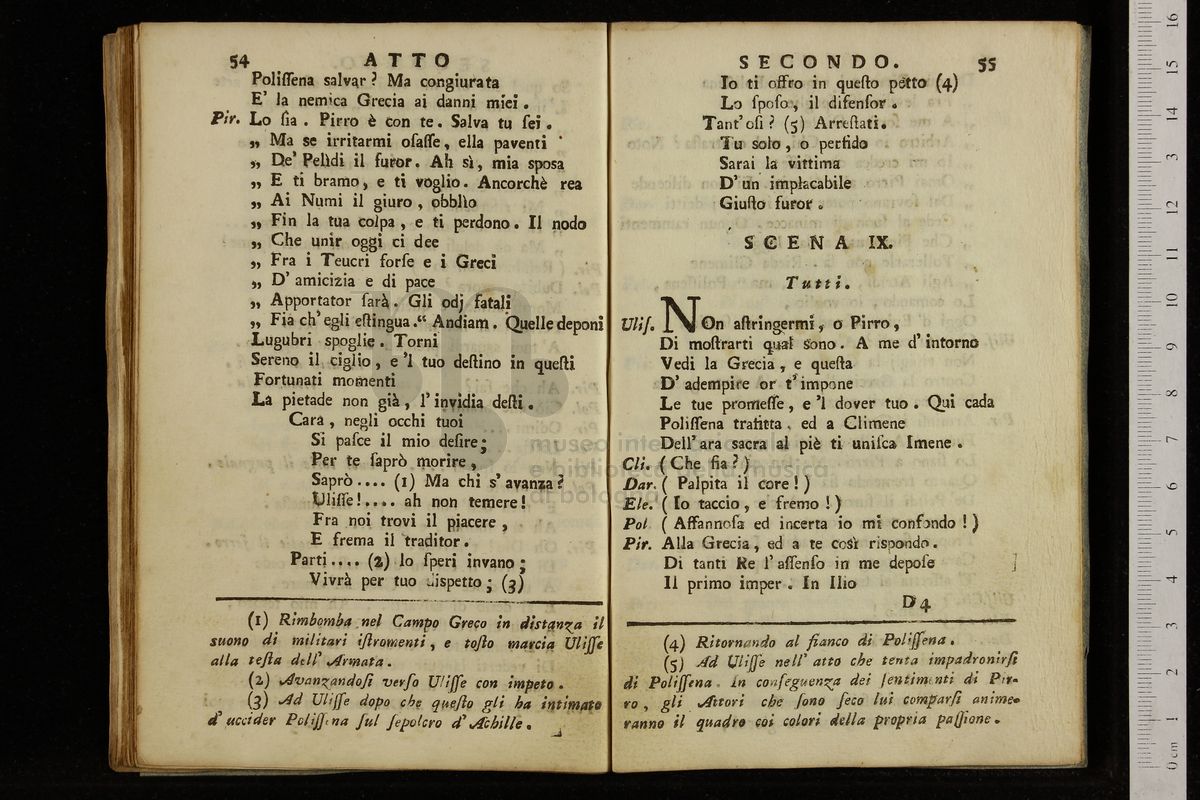 54 ATTO
Poliſſena salvar? Ma congiurata
E' la nemica Grecia ai danni miei.
Pir. Lo ſia. Pirro è con te. Salva tu ſei.
„ Ma se irritarmi oſaſſe, ella paventi
„ De' Pelìdi il furor. Ah sì, mia sposa
„ E ti bramo, e ti voglio. Ancorchè rea
„ Ai Numi il giuro, obblìo
„ Fin la tua colpa, e ti perdono. Il nodo
„ Che unir oggi ci dee
„ Fra i Teucri forſe e i Greci
„ D' amicizia e di pace
„ Apportator ſarà. Gli odj fatali
„ Fia ch' egli eſtingua.“ Andiam. Quelle deponi
Lugubri spoglie. Torni
Sereno il ciglio, e 'l tuo deſtino in queſti
Fortunati momenti
La pietade non già, l' invidia deſti.
Cara, negli occhi tuoi
Si paſce il mio deſire;
Per te ſaprò morire,
Saprò.... (1) Ma chi s' avanza?
Uliſſe!.... ah non temere!
Fra noi trovi il piacere,
E frema il traditor.
Parti.... (2) lo ſperi invano;
Vivrà per tuo dispetto; (3)
(1) Rimbomba nel Campo Greco in distanza il
suono di militari iſtromenti, e toſto marcia Uliſſe
alla teſta dell' Armata.
(2) Avanzandoſi verſo Uliſſe con impeto.
(3) Ad Uliſſe dopo che queſto gli ha intimato
d' uccider Poliſſena ſul ſepolcro d' Achille.
SECONDO. 55
Io ti offro in queſto petto (4)
Lo ſpoſo, il difenſor.
Tant' oſi? (5) Arreſtati.
Tu solo, o perfido
Sarai la vittima
D' un implacabile
Giuſto furor.
SCENA IX.
Tutti.
Uliſ. NOn aſtringermi, o Pirro,
Di moſtrarti qual sono. A me d' intorno
Vedi la Grecia, e queſta
D' adempire or t' impone
Le tue promeſſe, e 'l dover tuo. Qui cada
Poliſſena trafitta, ed a Climene
Dell' ara sacra al piè ti uniſca Imene.
Cli. (Che fia?)
Dar. (Palpita il core!)
Ele. (Io taccio, e fremo!)
Pol (Affannoſa ed incerta io mi confondo!)
Pir. Alla Grecia, ed a te così rispondo.
Di tanti Re l' aſſenſo in me depoſe
Il primo imper. In Ilio
D 4
(4) Ritornando al fianco di Poliſſena.
(5) Ad Uliſſe nell' atto che tenta impadronirſi
di Poliſſena. In conſeguenza dei ſentimenti di Pir-
ro, gli Attori che ſono ſeco lui comparſi anime-
ranno il quadro coi colori della propria paſſione.
museo internazionale
e biblioteca della musica
di bologna
0 cm 1 2 3 4 5 6 7 8 9 10 11 12 13 14 15 16